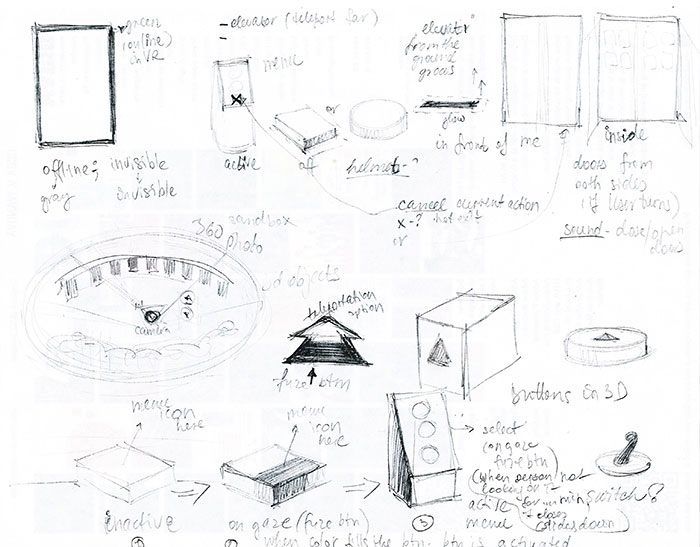 green
(online)
in VR
- elevator (teleport far)
-
menu
elevator
from the
ground
grows
or
active
off
glow
in front of me
inside
offline; invisible
gray
invisible
helmet-?
doors from
both sides
(if user turns)
sound - close/open
doors
cancel current action
x-? not exit
or
360
sandbox
photo
objects
camera
teleportation
option
fuze btn
buttons in 3D
menu
icon
here
menu
icon
here
select
on gaze
fuze btn
(when person not
looking
active
menu
closes
slides down)
switch?
inactive
on gaze (fuze btn)
1
2
3
when color fills the btn - btn is activated